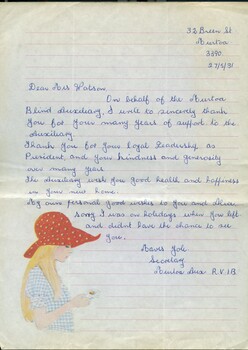 32 Breen St
Murtoa
3390
27/5/91
Dear Mrs Watson
On behalf of the Murtoa
Blind Auxiliary, I write to sincerely thank
you for your many years of support to the
Auxiliary.
Thank you for your loyal leadership as
President, and your kindness and generosity
over many years
The Auxiliary wish you good health and happiness
in your new home.
My own personal good wishes to you and
sorry I was on holidays when you left
and didnt have the chance to see
you.
Secretary
Murtoa Aux. R.V.I.B.